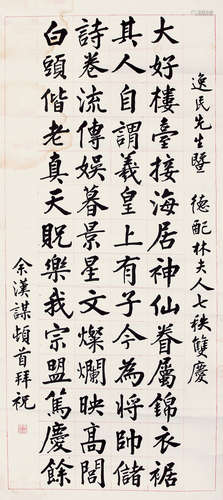 逸民先生暨 德配林夫人七秩雙慶
大好樓臺接海居神仙眷屬錦衣裾
其人自謂羲皇上有子今為將帥儲
詩卷流傳娛暮景星文燦爛映高閭
白頭偕老真天貺樂我宗盟篤慶餘
余漢謀頓首拜祝